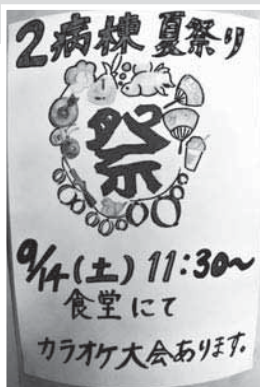 2病棟 夏祭り
祭
9/14(土) 11:30〜
食堂にて
カラオケ大会あります。